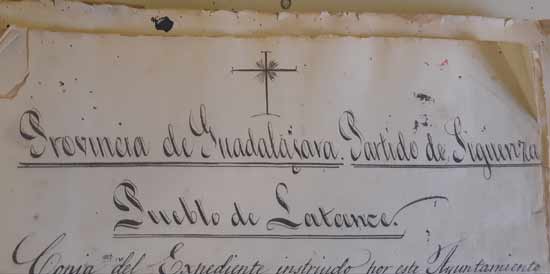 Provincia de Guadalajara. Partido de Siguenza
Pueblo de Latance.
Copia del Expediente instruido por este Ayuntamiento